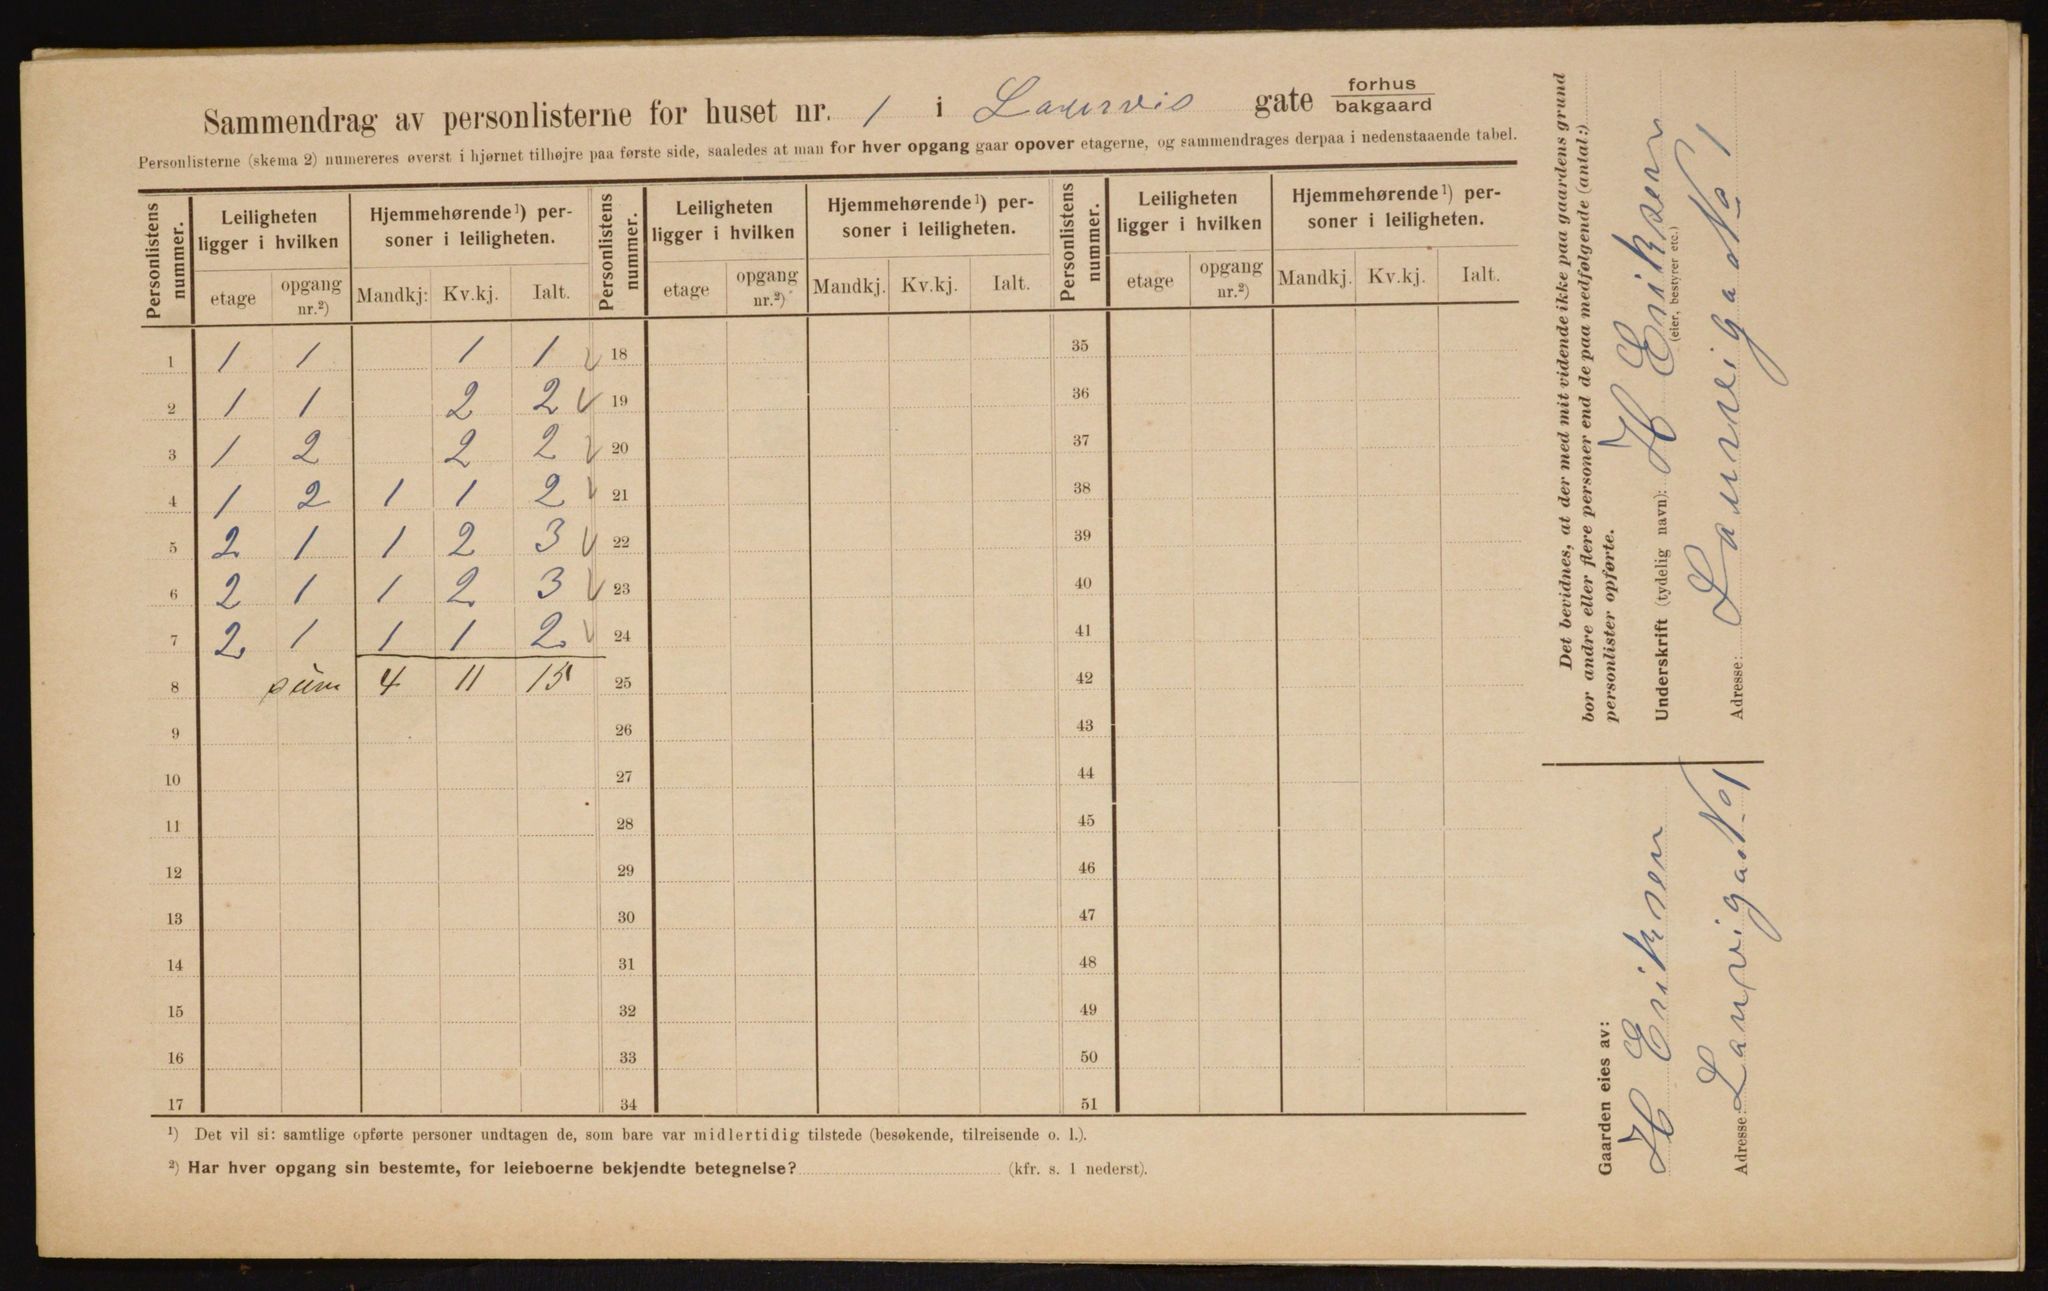 Sammendrag av personlisterne for huset nr. 1 i Laurvis gate forhus
bakgaard
Personlisterne (skema 2) numereres øverst i hjørnet tilhøjre paa første side, saaledes at man for hver opgang gaar opover etagerne, og sammendrages derpaa i nedenstaaende tabel.
Personlistens nummer. Leiligheten ligger i hvilken Hjemmehørende ¹) personer i leiligheten. Personlistens nummer. Leiligheten ligger i hvilken Hjemmehørende ¹) personer i leiligheten. Personlistens nummer. Leiligheten ligger i hvilken Hjemmehørende ¹) personer i leiligheten.
etage opgang nr.²) Mandkj: Kv.kj. Ialt. etage opgang nr.²) Mandkj. Kv.kj. Ialt. etage opgang nr.²) Mandkj. Kv.kj. Ialt.
1 1 1 1 1 18 35
2 1 1 2 2 19 36
3 1 2 2 2 20 37
4 1 2 1 1 2 21 38
5 2 1 1 2 3 22 39
6 2 1 1 2 3 23 40
7 2 1 1 1 2 24 41
8 sum 4 11 15 25 42
9 26 43
10 27 44
11 28 45
12 29 46
13 30 47
14 31 48
15 32 49
16 33 50
17 34 51
¹) Det vil si: samtlige opførte personer undtagen de, som bare var midlertidig tilstede (besøkende, tilreisende o. l.).
²) Har hver opgang sin bestemte, for leieboerne bekjendte betegnelse? (kfr. s. 1 nederst).
Det bevidnes, at der med mit vidende ikke paa gaardens grund
bor andre eller flere personer end de paa medfølgende (antal:)
personlister opførte.
Underskrift (tydelig navn): H Eriksen
(eier, bestyrer etc.)
Adresse: Laurviga No 1
Gaarden eies av:
H Eriksen
Adresse: Laurviga. No 1